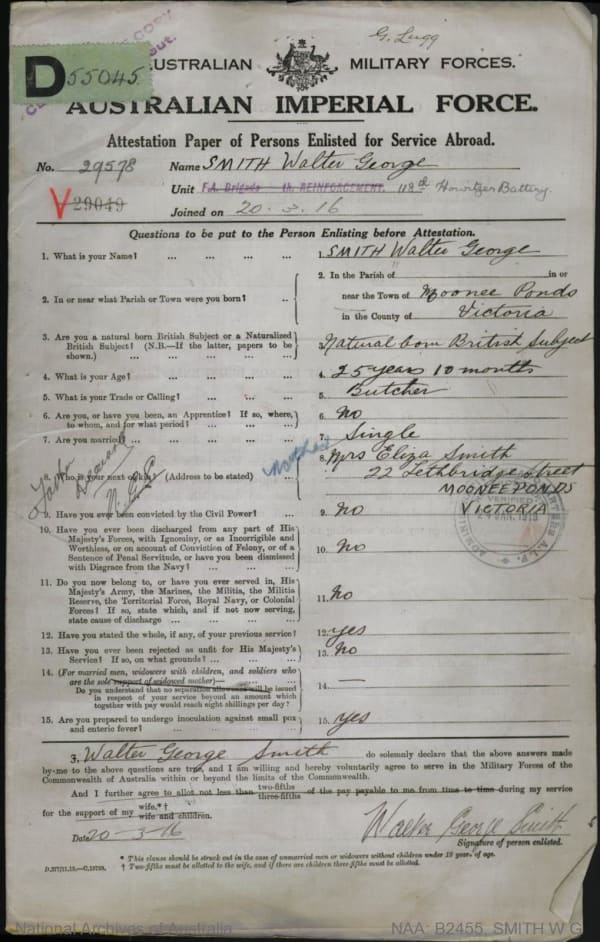 G. Lugg
D 55045
AUSTRALIAN MILITARY FORCES.
AUSTRALIAN IMPERIAL FORCE.
Attestation Paper of Persons Enlisted for Service Abroad.
No. 29578 Name SMITH Walter George
Unit F.A. Brigade th REINFORCEMENT. 118th Howitzer Battery.
V 29049
Joined on 20-3-16
Questions to be put to the Person Enlisting before Attestation.
1. What is your Name? ... ... ... ... 1. SMITH Walter George
2. In or near what Parish or Town were you born? ... 2. In the Parish of in or
near the Town of Moonee Ponds
in the County of Victoria
3. Are you a natural born British Subject or a Naturalized
British Subject? (N.B.—If the latter, papers to be
shown.) ... ... ... ... 3. Natural born British Subject
4. What is your Age? ... ... ... ... 4. 25 years 10 months
5. What is your Trade or Calling? ... ... ... 5. Butcher
6. Are you, or have you been, an Apprentice? If so, where,
to whom, and for what period? ... ... ... 6. No
7. Are you married? ... ... ... ... 7. Single
8. Who is your next of kin? (Address to be stated) ... mother 8. Mrs Eliza Smith
22 Lethbridge Street
MOONEE PONDS
VICTORIA
9. Have you ever been convicted by the Civil Power? ... 9. No
10. Have you ever been discharged from any part of His
Majesty's Forces, with Ignominy, or as Incorrigible and
Worthless, or on account of Conviction of Felony, or of a
Sentence of Penal Servitude, or have you been dismissed
with Disgrace from the Navy? ... ... ... 10. No
11. Do you now belong to, or have you ever served in, His
Majesty's Army, the Marines, the Militia, the Militia
Reserve, the Territorial Force, Royal Navy, or Colonial
Forces? If so, state which, and if not now serving,
state cause of discharge ... ... ... 11. No
12. Have you stated the whole, if any, of your previous service? 12. Yes
13. Have you ever been rejected as unfit for His Majesty's
Service? If so, on what grounds? ... ... ... 13. No
14. (For married men, widowers with children, and soldiers who
are the sole support of widowed mother)—
Do you understand that no separation allowance will be issued
in respect of your service beyond an amount which
together with pay would reach eight shillings per day? 14. —
15. Are you prepared to undergo inoculation against small pox
and enteric fever? ... ... ... ... 15. Yes
I, Walter George Smith do solemnly declare that the above answers made
by me to the above questions are true, and I am willing and hereby voluntarily agree to serve in the Military Forces of the
Commonwealth of Australia within or beyond the limits of the Commonwealth.
And I further agree to allot not less than two-fifths three-fifths of the pay payable to me from time to time during my service
for the support of my wife.*† wife and children.
Date 20-3-16
Walter George Smith
Signature of person enlisted.
* This clause should be struck out in the case of unmarried men or widowers without children under 18 years of age.
† Two-fifths must be allotted to the wife, and if there are children three-fifths must be allotted.
National Archives of Australia NAA: B2455, SMITH W G